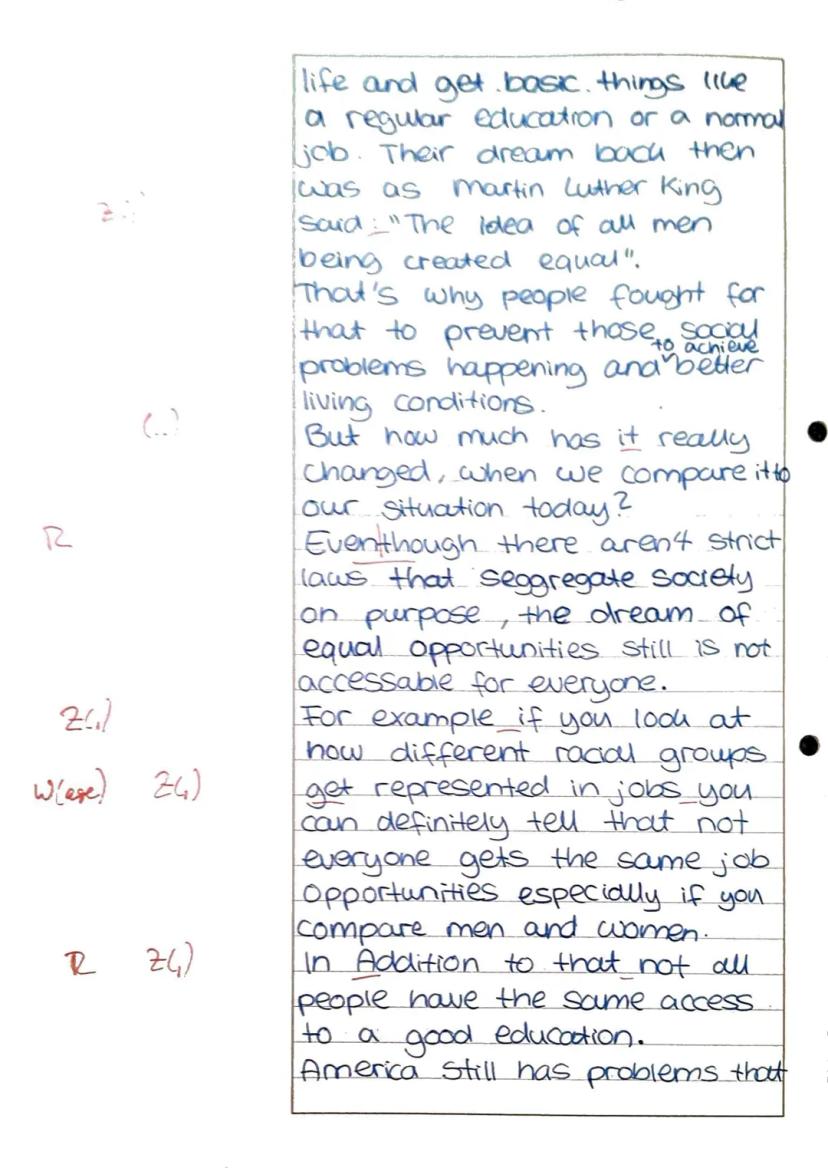 life and get basic things like
a regular education or a normal
job. Their dream back then
was as Martin Luther King
Z:
said: "The idea of all men
being created equal".
That's why people fought for
that to prevent those social
to achieve
problems happening and better
living conditions.
(..)
But how much has it really
changed, when we compare it to
our situation today?
R
Eventhough there aren't strict
laws that seggregate society
on purpose, the dream of
equal opportunities still is not
accessable for everyone.
Z(,)
For example if you look at
how different racial groups
W(are) Z(,)
get represented in jobs you
can definitely tell that not
everyone gets the same job
opportunities especially if you
compare men and women.
R Z(,)
In Addition to that not all
people have the same access
to a good education.
America still has problems that